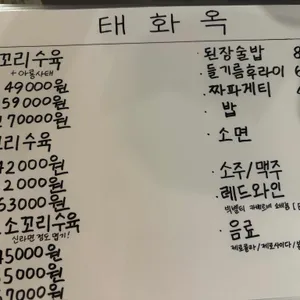 태화옥
꼬리수육
+ 아롱사태
49000원
59000원
70000원
꼬리수육
42000원
2000원
63000원
소꼬리수육
신라면 정도 맵기!
45000원
55000원
67000원
· 된장술밥
· 들기름후라이
· 짜파게티
· 밥
· 소면
· 소주/맥주
· 레드와인
· 음료
제로콜라/제로사이다/